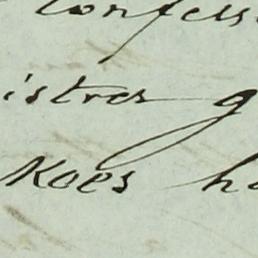 confess
istres g
Koes ha